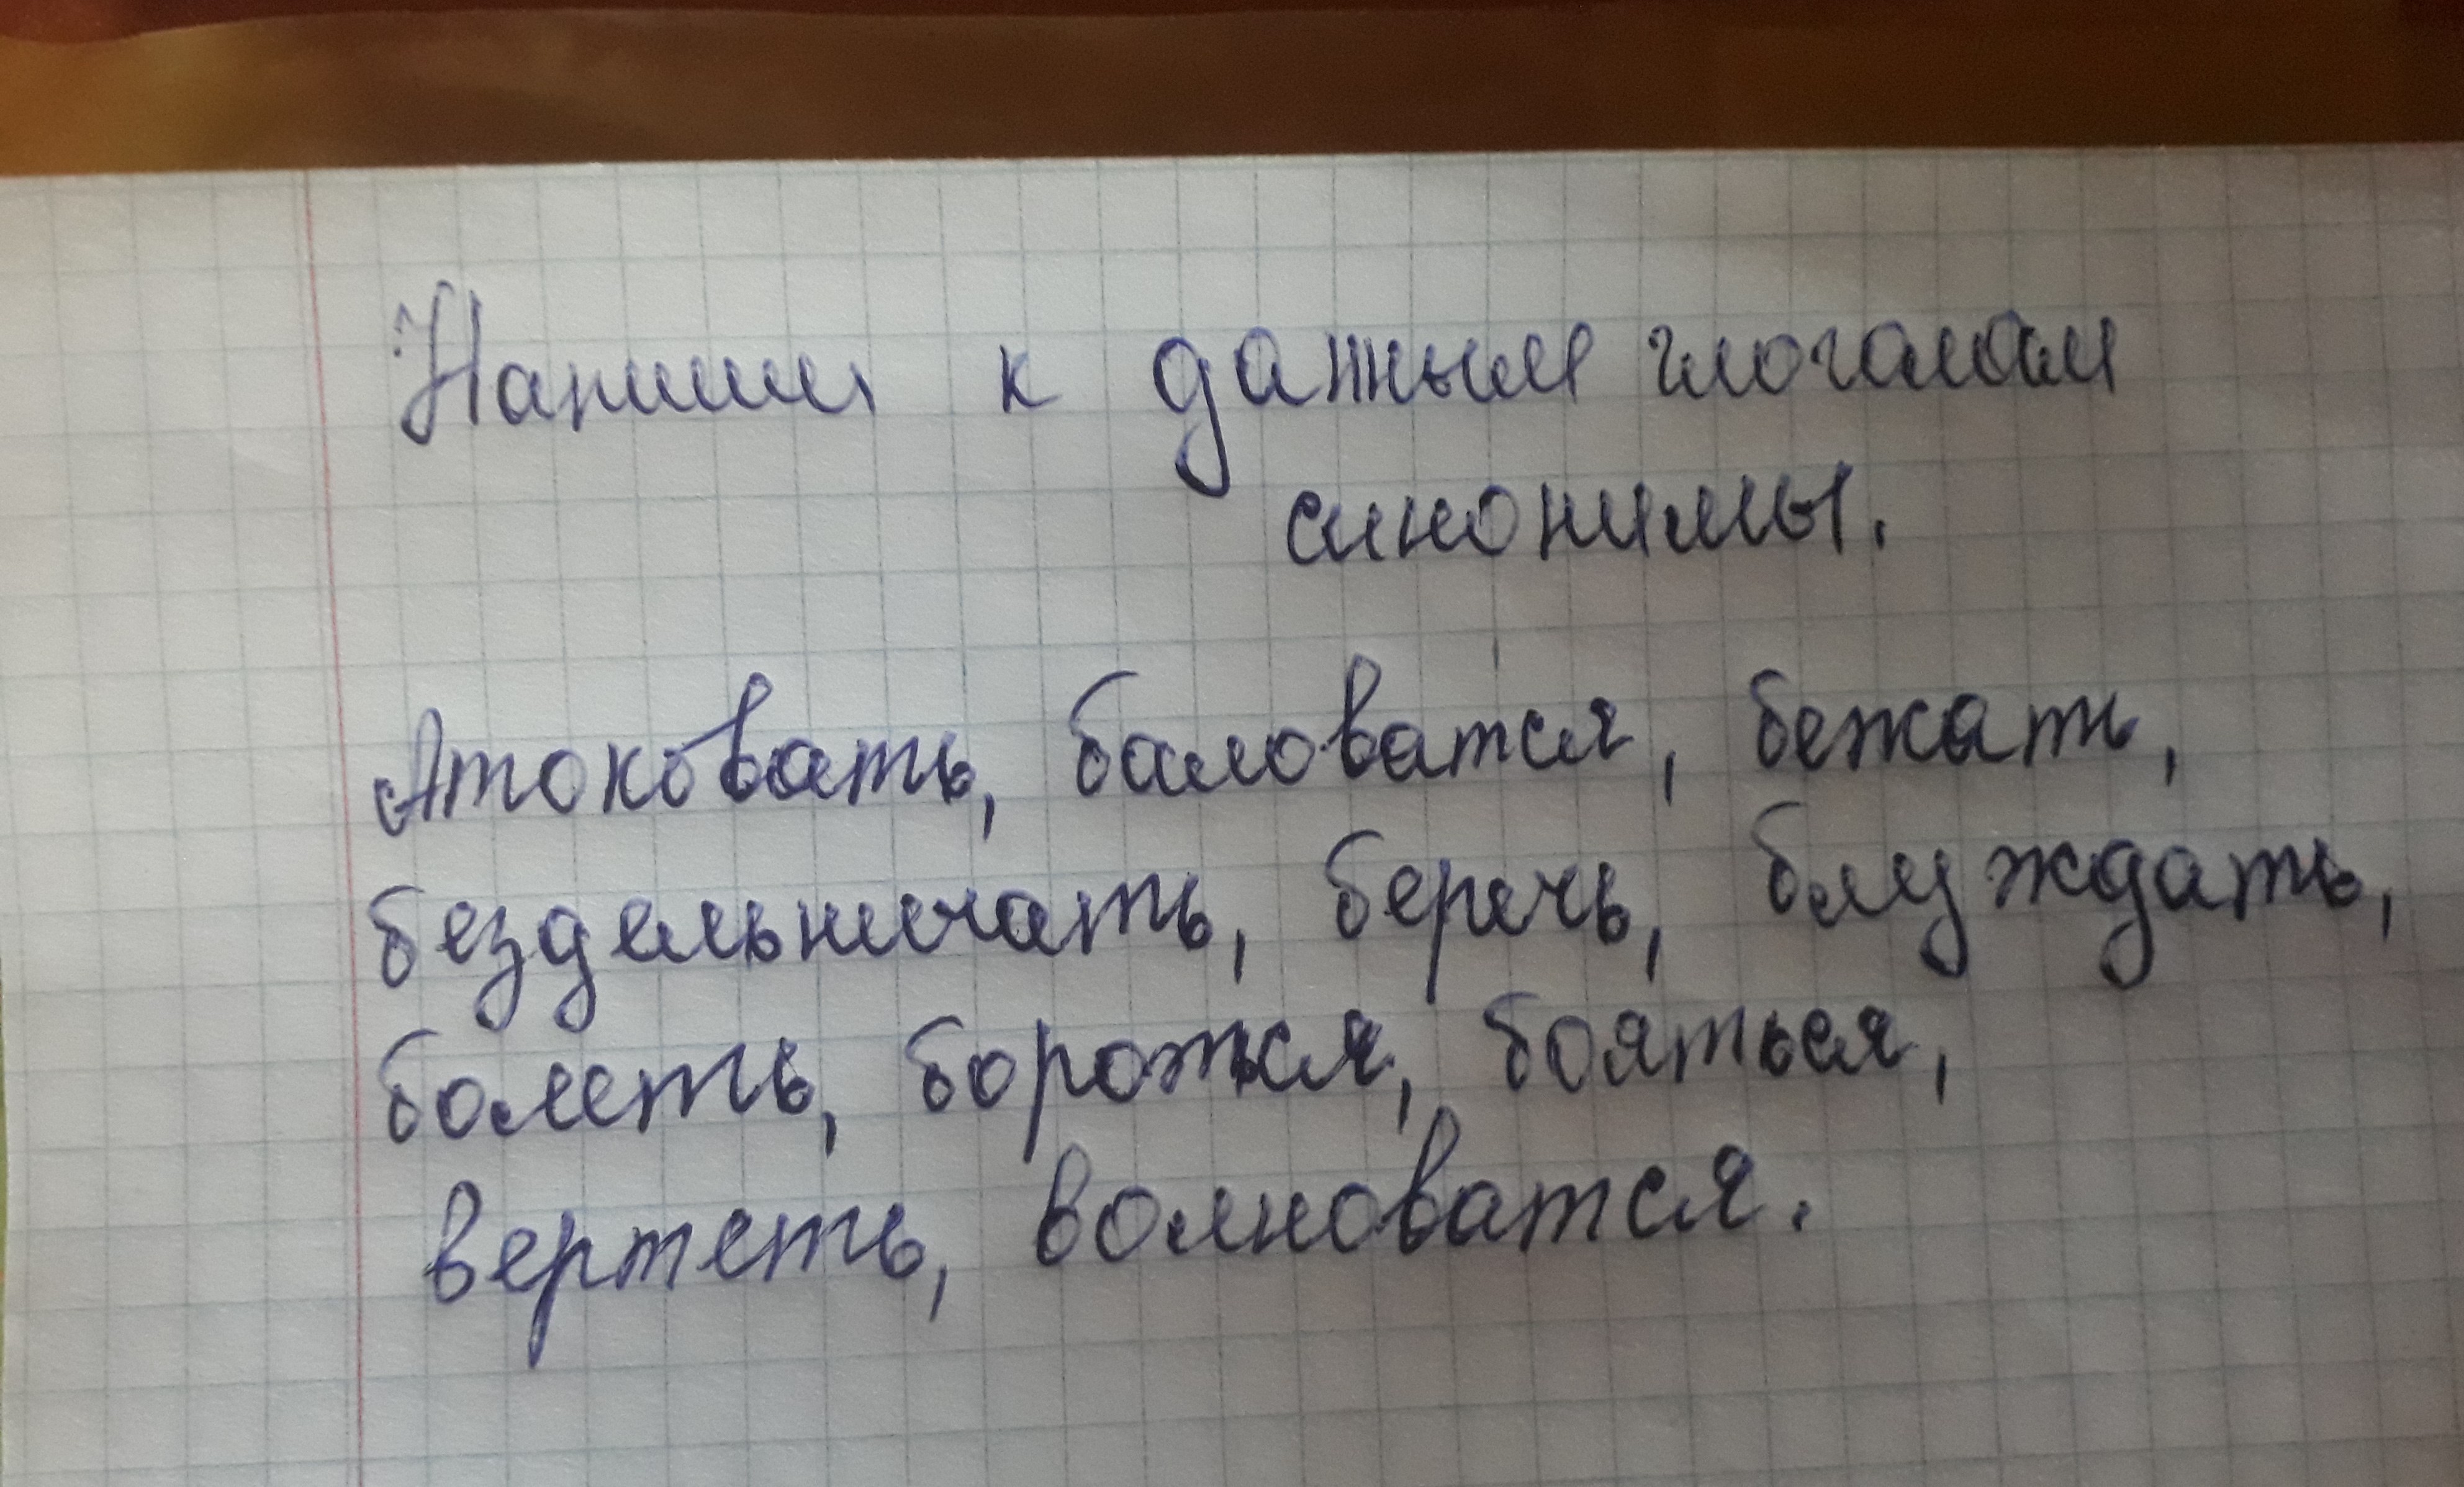 Напиши к данным глоголам
синонимы.
Атоковать, баловатся, бежать,
бездельничать, беречь, блуждать,
болеть, боротся, бояться,
вертеть, волноватся.